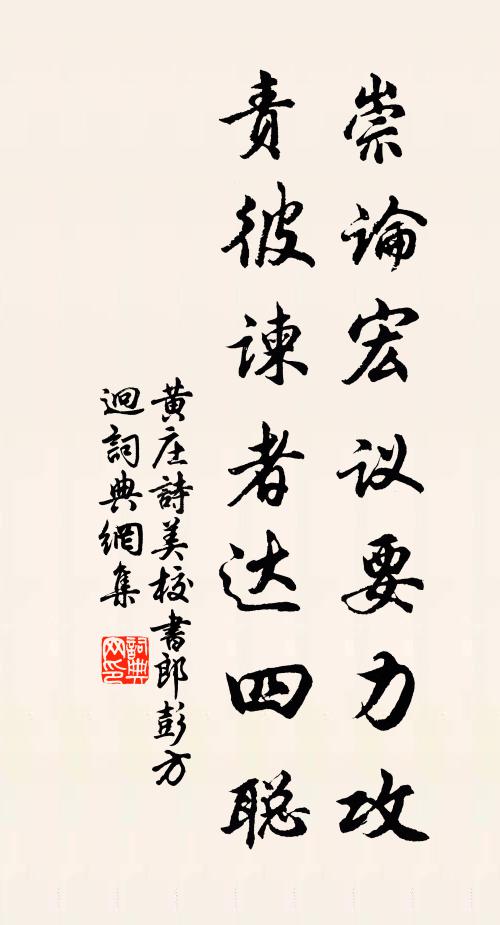 崇論宏议要力攻
责彼谏者达四聪
黄庄詩美校書郎彭方
迥詞典網集
詞典网印